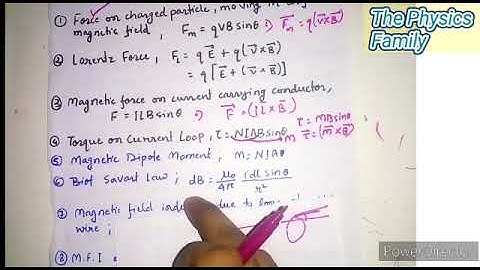 ① Force on charged particle, moving in any
magnetic field, Fm = qVB sinθ ⇒ F⃗m = q(V⃗×B⃗)
② Lorentz Force, FL = qE⃗ + q(V⃗×B⃗)
= q[E⃗ + (V⃗×B⃗)]
③ Magnetic force on current carrying conductor,
F = ILB sinθ ⇒ F⃗ = (IL⃗×B⃗)
τ = MB sinθ
④ Torque on Current Loop, τ = NIAB sinθ
M τ⃗ = (M⃗×B⃗)
⑤ Magnetic Dipole Moment, M = NIA
⑥ Biot Savart Law; dB = μ₀/4π Idl sinθ/r²
⑦ Magnetic field due to
wire;
⑧ M.F.I
The Physics
Family
PowerDirector